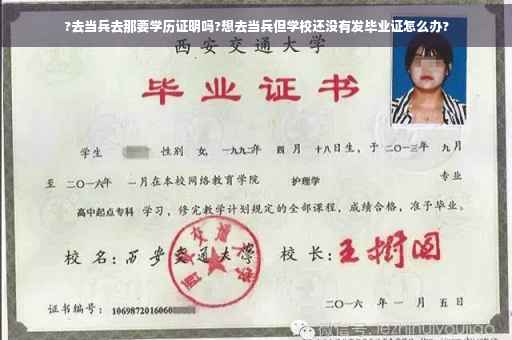 ?去当兵去那要学历证明吗?想去当兵但学校还没有发毕业证怎么办?
西安交通大学
毕业证书
学生 性别 女, 一九九二年 四月 十八日生, 于二〇一三年 九月
至 二〇一六年 一月在本校网络教育学院 护理学 专业
高中起点专科 学习, 修完教学计划规定的全部课程, 成绩合格, 准予毕业。
校名: 西安交通大学 校长: 王树国
西安交通大学
二〇一六年 一月 五日
证书编号: 1069872016060
微信号: jezhihuiyoujiao